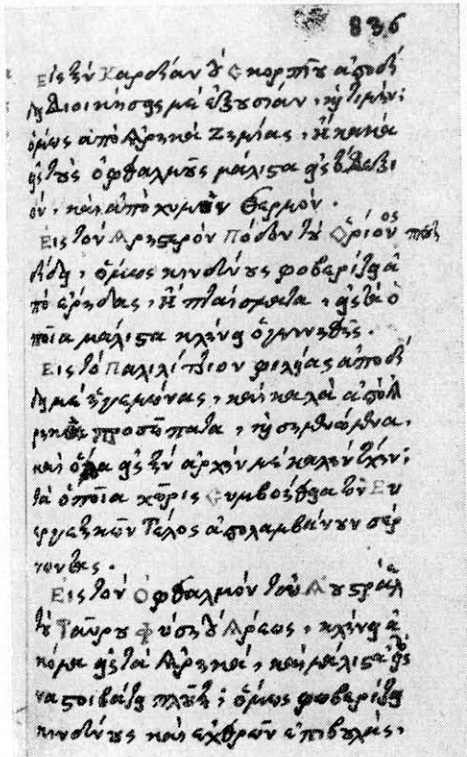 836
Εἰς τὴν Καρδίαν τοῦ Σκορπίου ἀποδί
δει Διοικήσεις μὲ ἐξουσίαν, καὶ τιμήν·
ὅμως ἀπὸ ζημίας, ἢ κακὰ
εἰς τοὺς ὀφθαλμοὺς μάλιστα εἰς τὸν Δεξι
όν, καὶ ἀπὸ χυμὸν Θερμόν.
Εἰς τὸν Ἀριστερὸν Πόδα τοῦ Ὀρίονος
δίδει, ὅμως κινδύνους φοβερίζει ἀ
πὸ ἢ πταίσματα, εἰς τὰ ὁ
ποῖα μάλιστα κλίνει ὁ γεννηθείς.
Εἰς τὸ Παλιλίτιον φιλίας ἀποδί
δει μὲ ἡγεμόνας, καὶ καλὰ ἀπὸ
προσώπατα, καὶ σεμνώμενα,
καὶ ὅλα εἰς τὴν ἀρχὴν μὲ καλὴν τύχην·
τὰ ὁποῖα χωρὶς τῶν Εὐ
εργετικῶν Τέλος ἀπολαμβάνουν
Εἰς τὸν Ὀφθαλμὸν τοῦ Αὐστράλη
τοῦ Ταύρου Φύσει τοῦ Ἄρεως, κλίνει ἀ
κόμα εἰς τὰ καὶ μάλιστα εἰς
νὰ στοιβάζει πλούτη· ὅμως φωβερίζει
κινδύνους καὶ ἐχθρῶν ἐπιβουλάς.